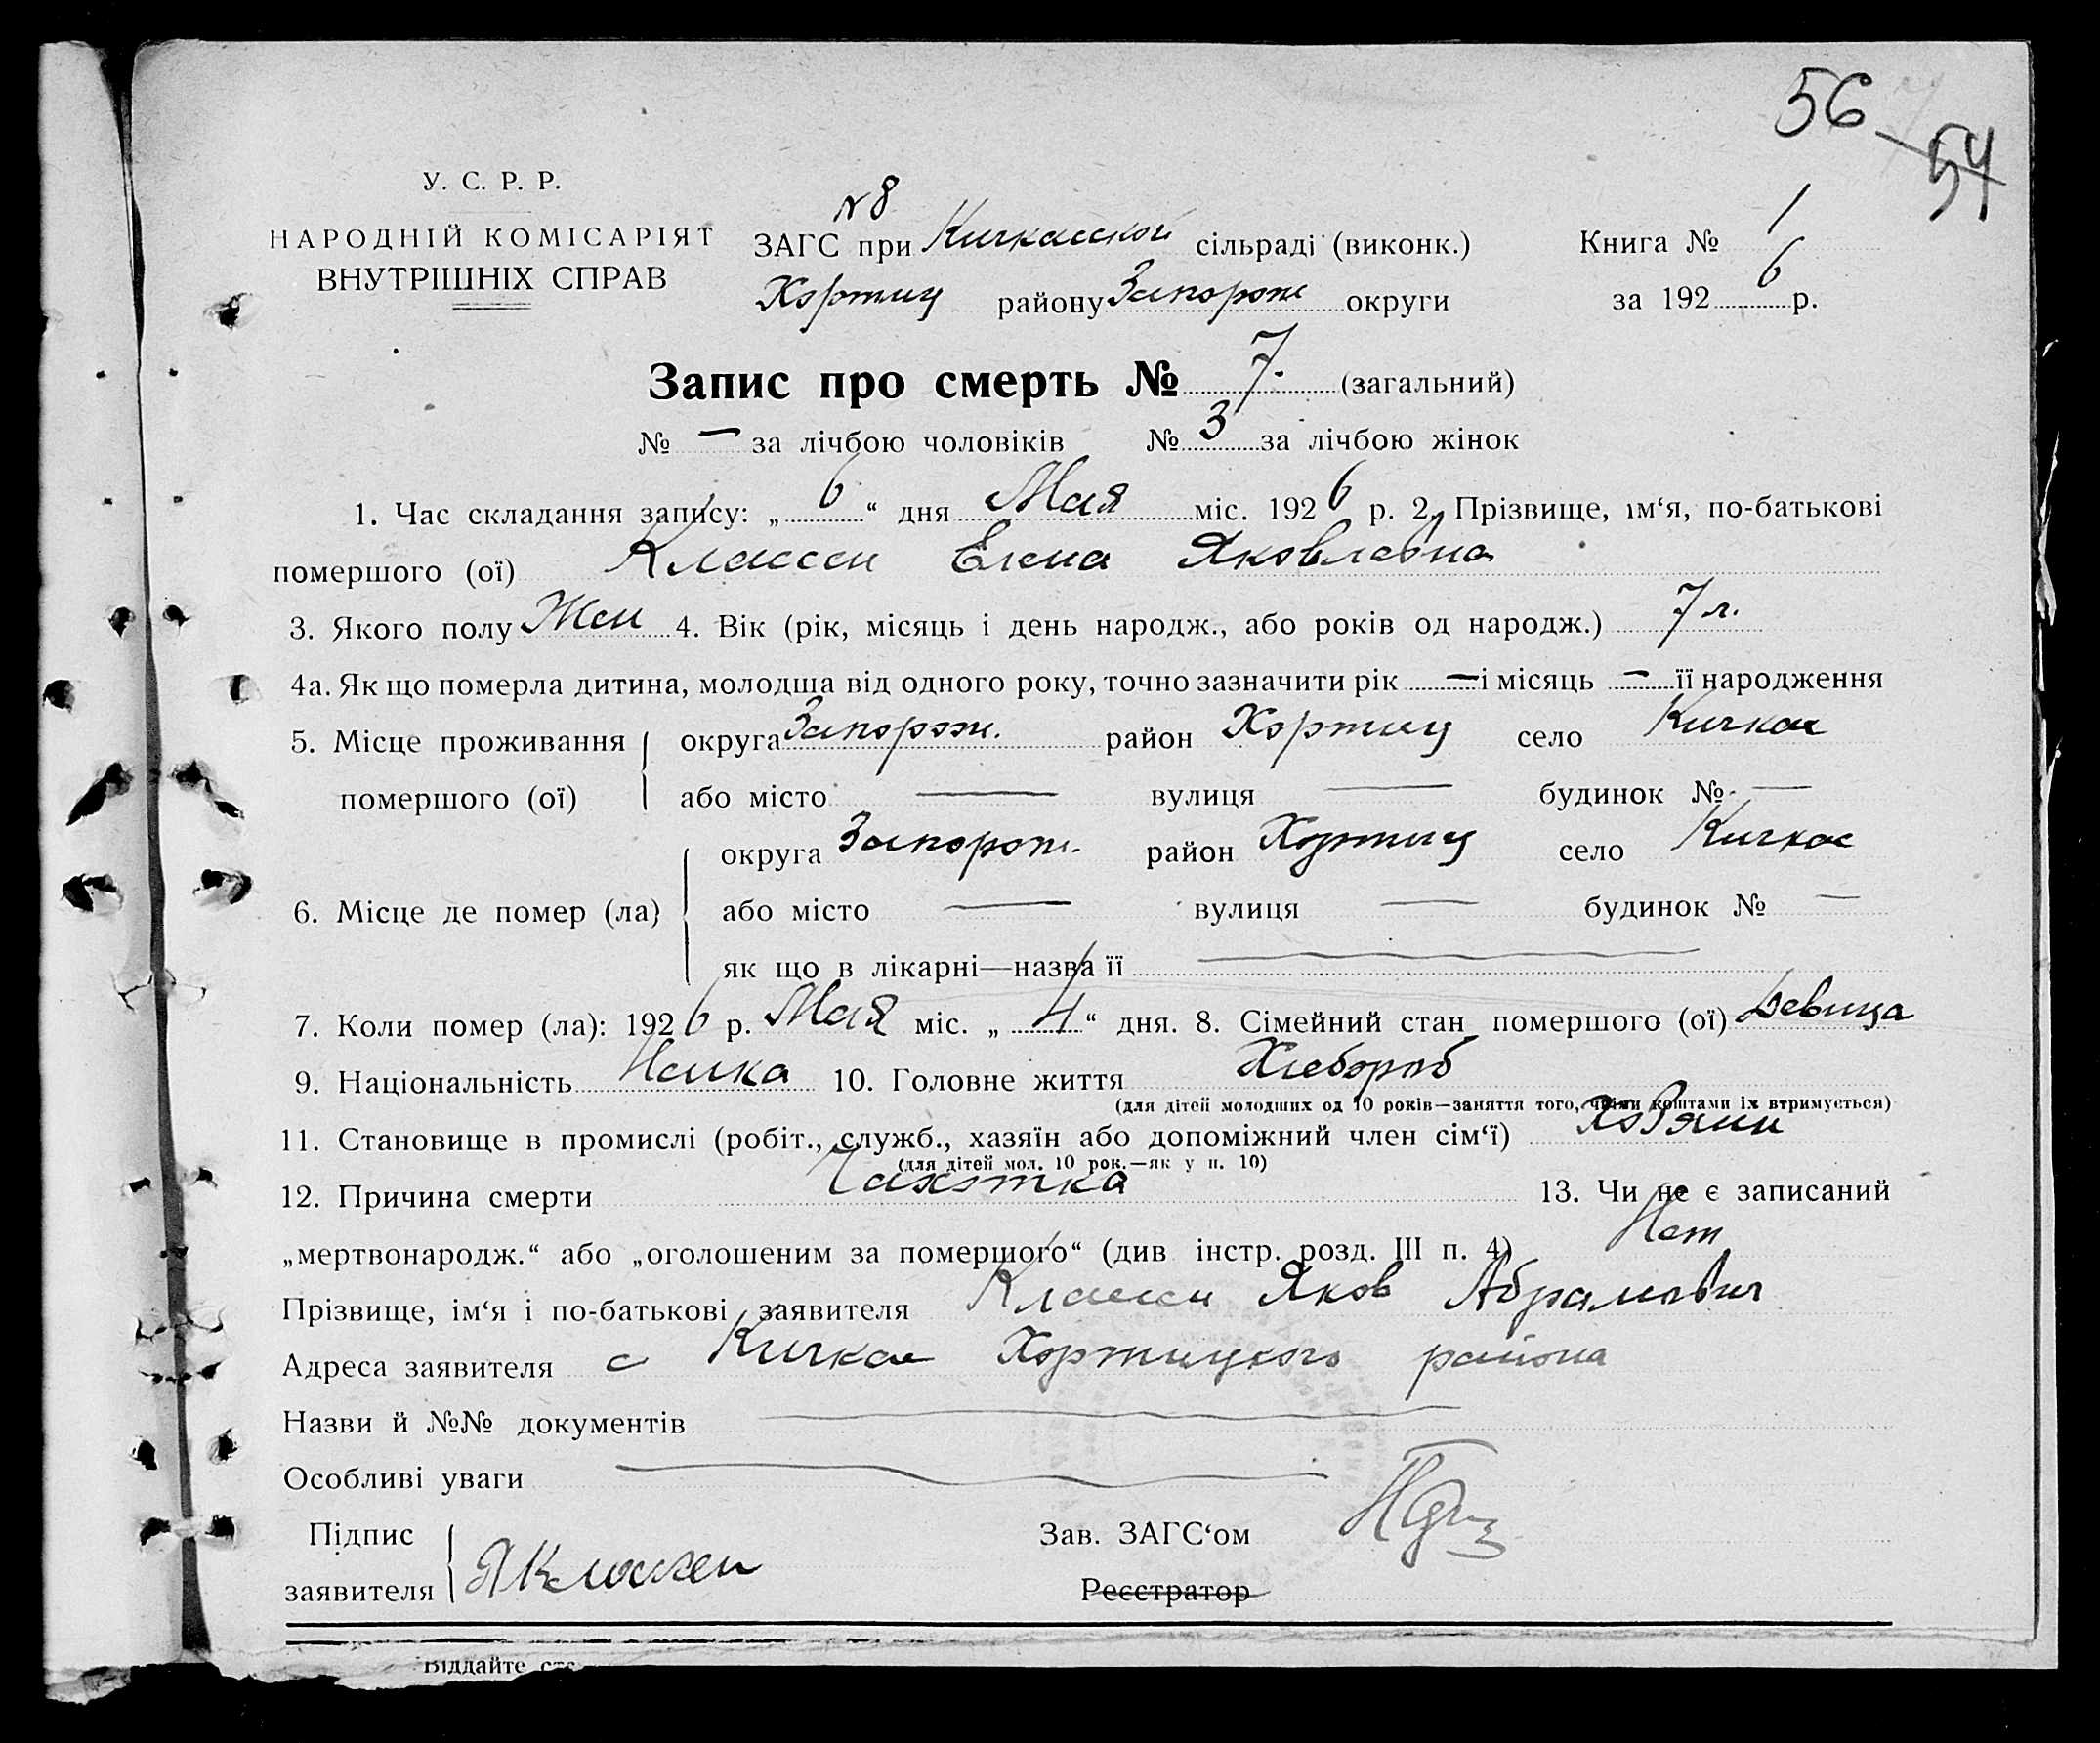 56
54
У. С. Р. Р.
НАРОДНІЙ КОМІСАРІЯТ
ВНУТРІШНІХ СПРАВ
№ 8
ЗАГС при Кичкасской сільраді (виконк.)
Хортиц району Запорож округи
Книга № 1
за 1926 р.
Запис про смерть № 7. (загальний)
№ — за лічбою чоловіків № 3 за лічбою жінок
1. Час складання запису: „6“ дня Мая міс. 1926 р. 2. Прізвище, ім‘я, по-батькові
помершого (ої) Классен Елена Яковлевна
3. Якого полу Жен 4. Вік (рік, місяць і день народж., або років од народж.) 7 л.
4а. Як що померла дитина, молодша від одного року, точно зазначити рік — і місяць — її народження
5. Місце проживання округа Запорож. район Хортиц село Кичкас
помершого (ої) або місто — вулиця — будинок № —
округа Запорож. район Хортиц село Кичкас
6. Місце де помер (ла) або місто — вулиця — будинок № —
як що в лікарні—назва її —
7. Коли помер (ла): 1926 р. Мая міс. „4“ дня. 8. Сімейний стан помершого (ої) Девица
9. Національність Немка 10. Головне життя Хлебороб
(для дітей молодших од 10 років—заняття того, чиїми коштами їх втримується)
11. Становище в промислі (робіт., служб., хазяїн або допоміжний член сім‘ї) Хозяин
(для дітей мол. 10 рок.—як у п. 10)
12. Причина смерти Чахотка 13. Чи не є записаний
„мертвонародж.“ або „оголошеним за помершого“ (див інстр. розд. III п. 4) Нет
Прізвище, ім‘я і по-батькові заявителя Классен Яков Абрамович
Адреса заявителя с Кичкас Хортицкого района
Назви й №№ документів —
Особливі уваги —
Підпис
заявителя Я Классен
Зав. ЗАГС‘ом
Реєстратор
Віддайте